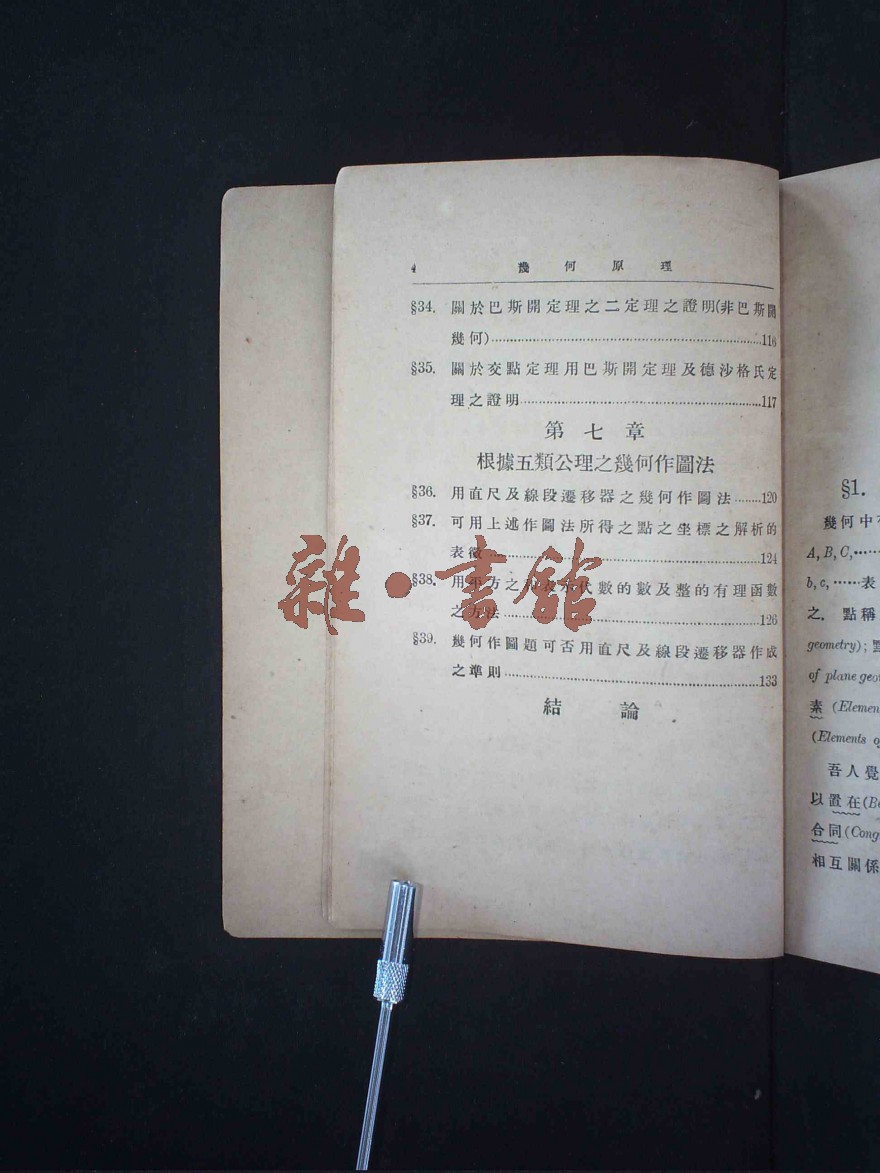 4 幾何原理
§34. 關於巴斯開定理之二定理之證明(非巴斯開
幾何)……116
§35. 關於交點定理用巴斯開定理及德沙格氏定
理之證明……117
第七章
根據五類公理之幾何作圖法
§36. 用直尺及線段遷移器之幾何作圖法……120
§37. 可用上述作圖法所得之點之坐標之解析的
表徵……124
§38. 用平方之和表示代數的數及整的有理函數
之方法……126
§39. 幾何作圖題可否用直尺及線段遷移器作成
之準則……133
結論
雜·書館
§1.
幾何中
A, B, C,……
b, c, ……表
之. 點稱
geometry);
of plane geo
素 (Elemen
(Elements o
吾人覺
以置在(Be
合同(Cong
相互關係